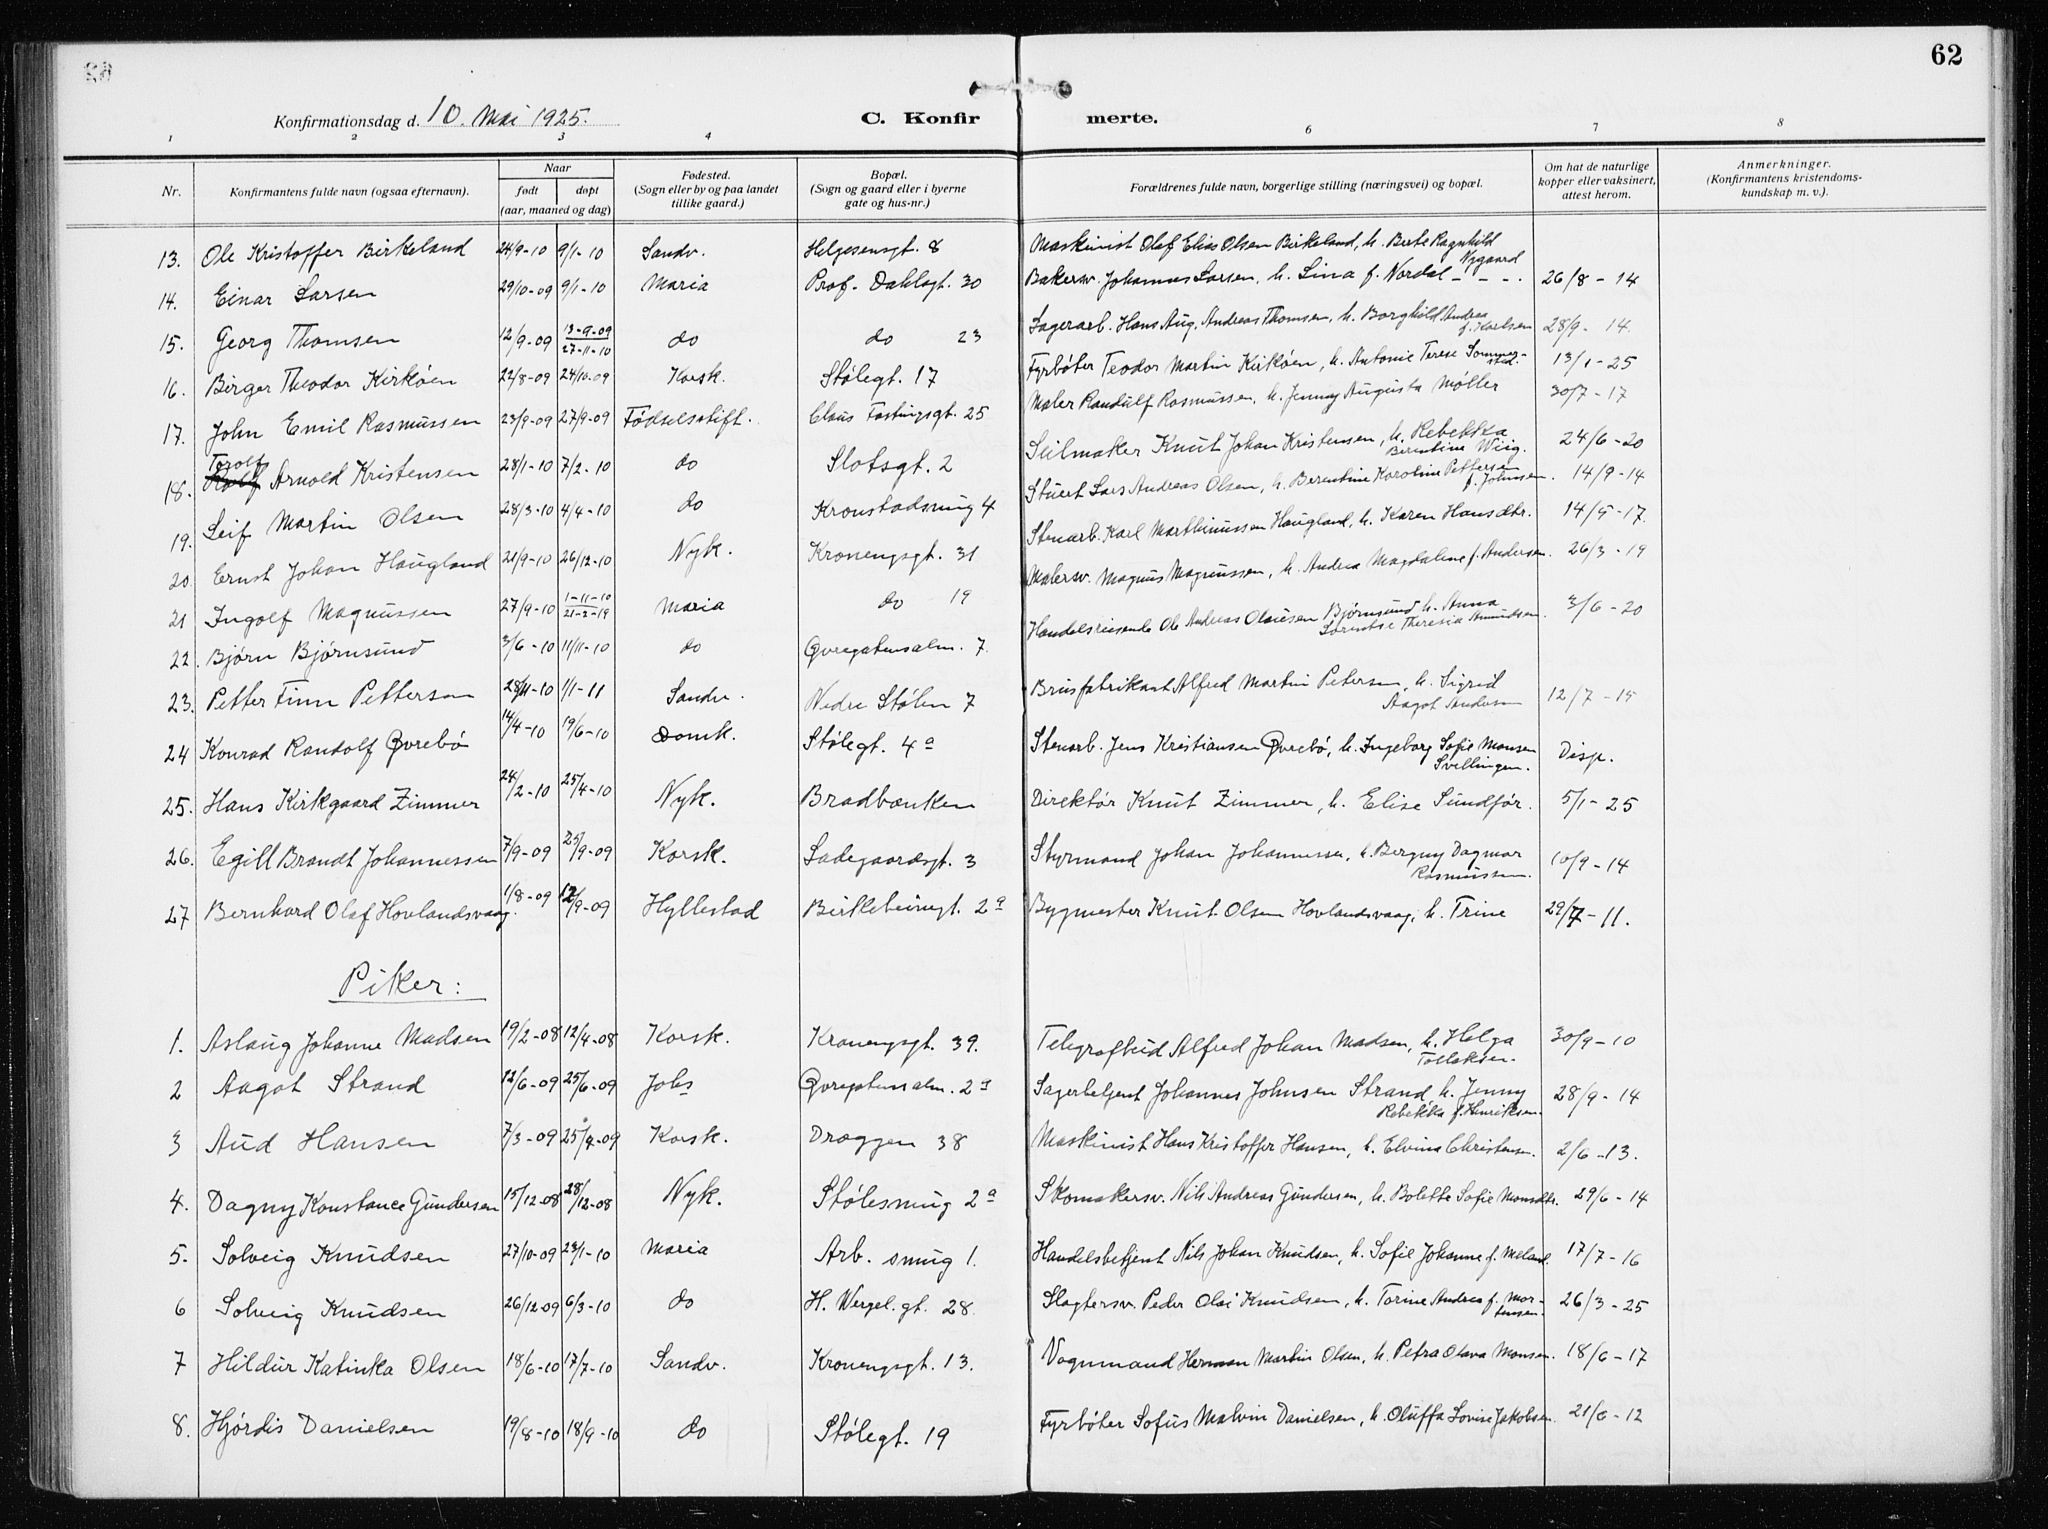 62
Konfirmationsdag d. 10. Mai 1925.
C. Konfirmerte.
1 2 3 4 5 6 7 8
Nr. Konfirmantens fulde navn (ogsaa efternavn). Naar født døpt (aar, maaned og dag) Fødested. (Sogn eller by og paa landet tillike gaard.) Bopæl. (Sogn og gaard eller i byerne gate og hus-nr.) Forældrenes fulde navn, borgerlige stilling (næringsvei) og bopæl. Om hat de naturlige kopper eller vaksinert, attest herom. Anmerkninger. (Konfirmantens kristendomskundskap m. v.).
13. Ole Kristoffer Birkeland 24/9-10 9/1-10 Sandv. Helgesensgt. 8 Maskinist Olaf Elias Olsen Birkeland, h. Berte Ragnhild Nygaard
14. Einar Larsen 29/10-09 9/1-10 Maria Prof. Dahlsgt. 30 Bakersv. Johannes Larsen, h. Lina f. Nordal - - - . 26/8-14
15. Georg Thomsen 12/9-09 13-9-09 27-11-10 do do 23 Lagerarb. Hans Aug. Andreas Thomsen, h. Borghild Andrea f. Karlsen 28/9-14.
16. Birger Theodor Kirkøen 22/8-09 24/10-09 Korsk. Stølegt. 17 Fyrbøter Teodor Martin Kirkøen, h. Antonie Terese Sommerstad. 13/1-25
17. John Emil Rasmussen 23/9-09 27/9-09 Fødselsstift. Claus Fastingsgt. 25 Maler Randulf Rasmussen, h. Jenny Augusta Møller 30/7-17
18. Torolf Arnold Kristensen 28/1-10 7/2-10 do Slotsgt. 2 Seilmaker Knut Johan Kristensen, h. Rebekka Berentine Wiig. 24/6-20
19. Leif Martin Olsen 28/3-10 4/4-10 do Kronstadsmug 4 Stuert Lars Andreas Olsen, h. Berentine Karoline Pettersen f. Johnsen. 14/9-14
20 Ernst Johan Haugland 21/9-10 26/12-10 Nyk. Kronengsgt. 31 Stenarb. Karl Marthinussen Haugland, h. Karen Hansdtr. 14/5-17.
21 Ingolf Magnussen 27/9-10 1-11-10 21-2-19 Maria do 19 Malersv. Magnus Magnussen, h. Andrea Magdalene f. Andersen. 26/3-19
22. Bjørn Bjørnsund 3/6-10 11/11-10 do Øvregatensalm. 7. Handelsreisende Ole Andreas Olausen Bjørnsund h. Anna Lorentse Theresia Amundsen. 3/6-20
23. Petter Finn Petterson 28/11-10 1/1-11 Sandv. Nedre Stølen 7 Brusfabrikant Alfred Martin Petersen, h. Sigrid Aagot Andersen 12/7-15
24 Konrad Randolf Øvrebø 14/4-10 19/6-10 Domk. Stølegt. 4a Stenarb. Jens Kristiansen Øvrebø, h. Ingeborg Sofie Monsen Svellingen. Disp.
25. Hans Kirkgaard Zimmer 24/2-10 25/4-10 Nyk. Bradbænken Direktør Knut Zimmer, h. Elise Sundfør. 5/1-25
26. Egill Brandt Johannessen 7/9-09 25/9-09 Korsk. Ladegaardsgt. 3 Styrmand Johan Johannessen, h. Bergny Dagmar Rasmussen. 10/9-14
27 Bernhard Olaf Hovlandsvaag. 1/8-09 12/9-09 Hyllestad Birkebeinergt. 2a Bygmester Knut Olsen Hovlandsvaag, h. Trine 29/7-11.
Piker:
1. Aslaug Johanne Madsen 19/2-08 12/4-08 Korsk. Kronengsgt. 39. Telegrafbud Alfred Johan Madsen, h. Helga Tollaksen. 30/9-10
2 Aagot Strand 12/6-09 25/6-09 Johs Øvregatensalm. 2a Lagerbetjent Johannes Johnsen Strand h. Jenny Rebekka f. Henriksen. 28/9-14
3 Aud Hansen 7/3-09 25/4-09 Korsk. Dræggen 38 Maskinist Hans Kristoffer Hansen, h. Elvina Christensen. 2/6-13.
4. Dagny Konstance Gundersen 15/12-08 28/12-08 Nyk. Stølesmug 2a Skomakersv. Nils Andreas Gundersen, h. Bolette Sofie Monsdtr. 29/6-14
5. Solveig Knudsen 27/10-09 23/1-10 Maria Arb. smug 1. Handelsbetjent Nils Johan Knudsen, h. Sofie Johanne f. Meland. 17/7-16
6 Solveig Knudsen 26/12-09 6/3-10 do H. Vergel.gt. 28. Slagtersv. Peder Olai Knudsen, h. Torine Andrea f. Mortensen. 26/3-25
7 Hildur Katinka Olsen 18/6-10 17/7-10 Sandv. Kronengsgt. 13. Vognmand Herman Martin Olsen, h. Petra Olava Monsen. 18/6-17
8. Hjørdis Danielsen 19/8-10 18/9-10 do Stølegt. 19 Fyrbøter Sofus Malvin Danielsen, h. Oluffa Lovise Jakobsen. 21/6-12